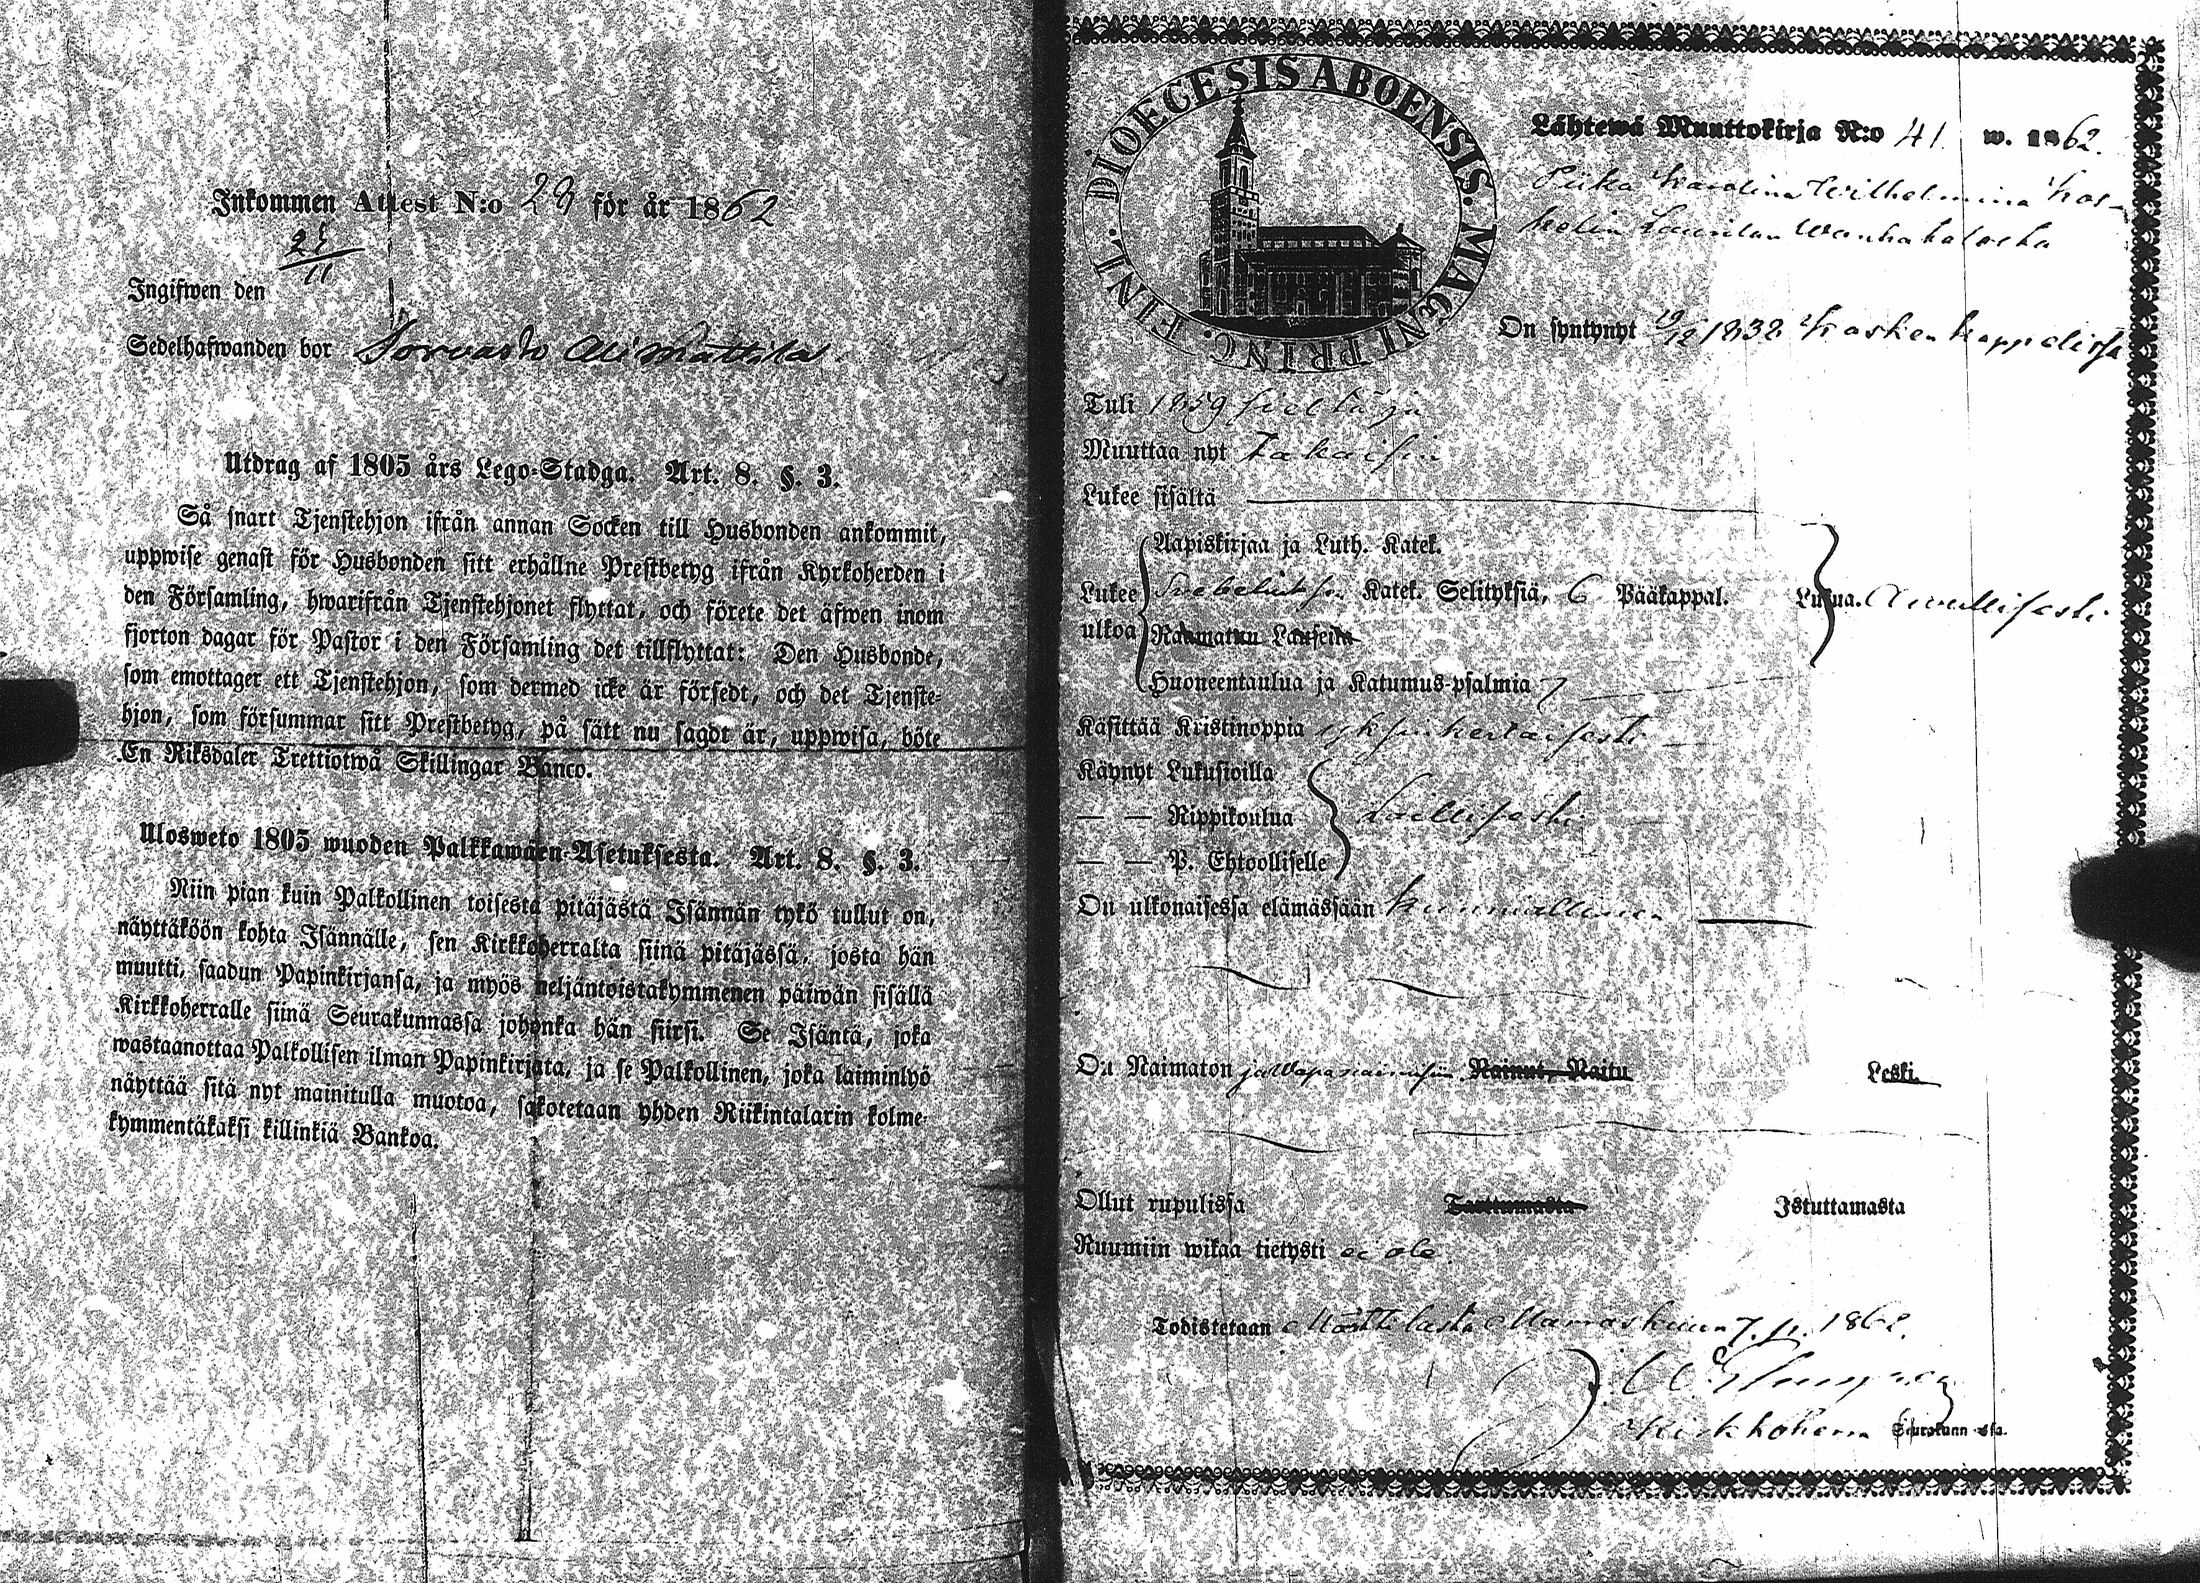 Inkommen Attest N:o 29 för år 1862
25/11
Ingifwen den
Sedelhafwanden bor Sorvasto Ali Mattila
Utdrag af 1805 års Lego-Stadga. Art. 8. §. 3.
Så snart Tjenstehjon ifrån annan Socken till Husbonden ankommit,
uppwise genast för Husbonden sitt erhållne Prestbetyg ifrån Kyrkoherden i
den Församling, hwarifrån Tjenstehjonet flyttat, och förete det äfwen inom
fjorton dagar för Pastor i den Församling det tillflyttat: Den Husbonde,
som emottager ett Tjenstehjon, som dermed icke är försedt, och det Tjenste-
hjon, som försummar sitt Prestbetyg, på sätt nu sagdt är, uppwisa, böte
En Riksdaler Trettiotwå Skillingar Banco.
Ulosweto 1805 wuoden Palkkawäen-Asetuksesta. Art. 8. §. 3.
Niin pian kuin Palkollinen toisesta pitäjästä Isännän tykö tullut on,
näyttäköön kohta Isännälle, sen Kirkkoherralta siinä pitäjässä, josta hän
muutti, saadun Papinkirjansa, ja myös neljäntoistakymmenen päiwän sisällä
Kirkkoherralle siinä Seurakunnassa johonka hän siirsi. Se Isäntä, joka
wastaanottaa Palkollisen ilman Papinkirjata, ja se Palkollinen, joka laiminlyö
näyttää sitä nyt mainitulla muotoa, sakotetaan yhden Riikintalarin kolme-
kymmentäkaksi killinkiä Bankoa.
DIOECESIS ABOENSIS. MAGNI PRINC. FINL.
Lähtewä Muuttokirja N:o 41 w. 1862.
Piika Karolina Wilhelmina Kos-
kelin Laurilan Wanhatalosta
On syntynyt 19/12 1838 Kosken kappelissa
Tuli 1859 sieltä ja
Muuttaa nyt takaisin
Lukee sisältä
Aapiskirjaa ja Luth. Katek.
Lukee Svebeliuksen Katek. Selityksiä, 6 Pääkappal. Lukua. Awullisesti
ulkoa Raamatun Lauseita
Huoneentaulua ja Katumus-psalmia 7
Käsittää Kristinoppia yksinkertaisesti
Käynyt Lukusioilla
— — Rippikoulua Laillisesti
— — P. Ehtoolliselle
On ulkonaisessa elämässään kunniallinen
On Naimaton ja wapa naimisiin Nainut, Naitu Leski.
Ollut rupulissa Tarttumasta Istuttamasta
Ruumiin wikaa tietysti ei ole
Todistetaan Marraskuun 7. p. 1862.
Kirkkoherra Seurakunnssa.